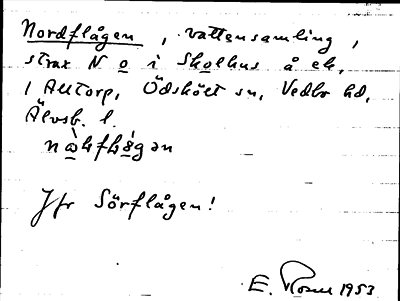 Nordflågen, vattensamling,
strax N o i Skolhus å ek.
1 Alltorp, Ödskölt sn, Vedbo hd,
Älvsb. l.
Jfr Sörflågen!
E. 1953